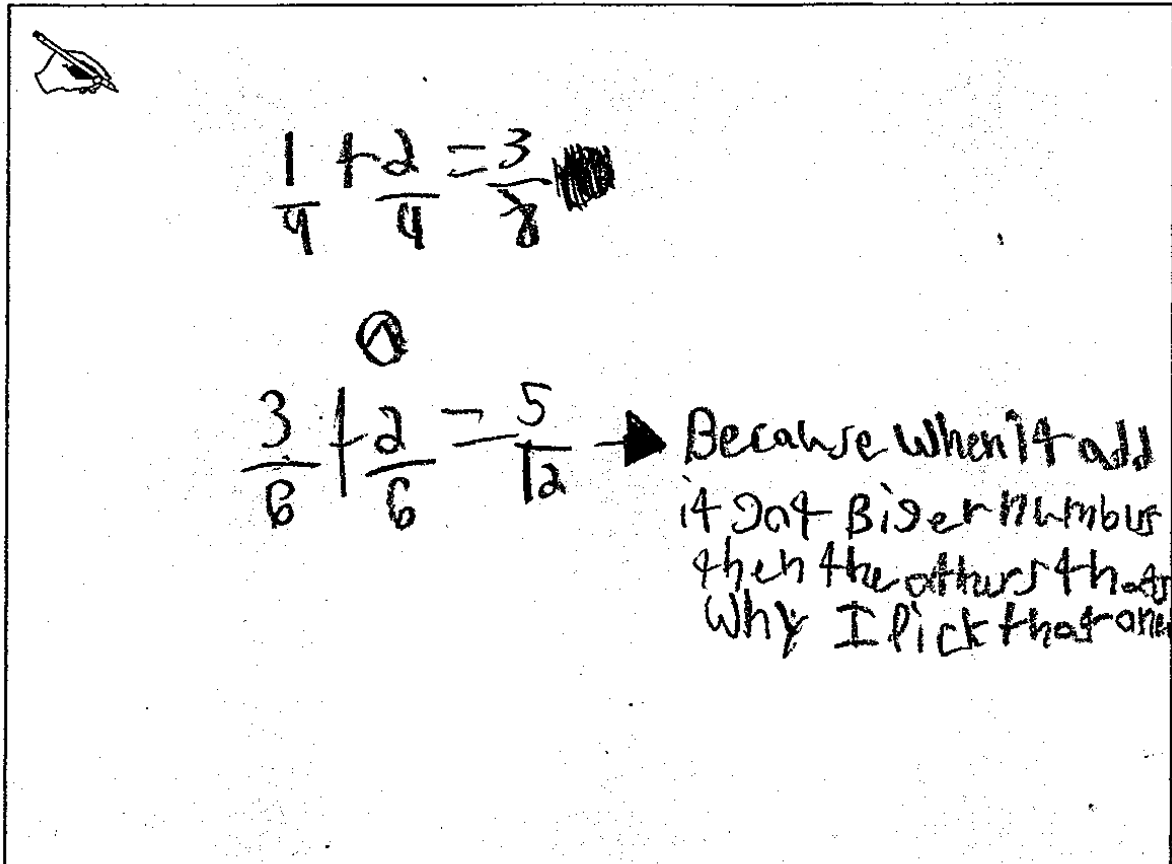 1/4 + 2/4 = 3/8
3/6 + 2/6 = 5/12 → Because when it add
it got Biger numbus
then the othurs thats
why I Pick that one